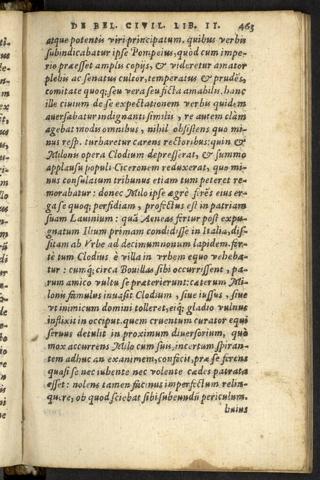 DE BEL. CIVIL. LIB. II. 463
atque potentis viri principatum, quibus verbis
subindicabatur ipse Pompeius, quòd cum impe-
rio præesset amplis copijs, & videretur amator
plebis ac senatus cultor, temperatus & prudēs,
comitate quoq; seu vera seu ficta amabilis. hanc
ille ciuium de se expectationem verbis quidem
auersabatur indignanti similis, re autem clàm
agebat modis omnibus, nihil obsistens quo mi-
nus resp. turbaretur carens rectoribus: quin &
Milonis opera Clodium depresserat, & summo
applausu populi Ciceronem reduxerat, quo mi-
nus consulatum tribunus etiam tum peteret re-
morabatur: donec Milo ipse ægrè ferēs eius er-
ga se quoq; perfidiam, profectus est in patriam
suam Lauinium: quā Aeneas fertur post expu-
gnatum Ilium primam condidisse in Italia, dis-
sitam ab Vrbe ad decimumnonum lapidem. for-
tè tum Clodius è villa in vrbem equo vehebа-
tur: cumq; circa Bouillas sibi occurrissent, pa-
rum amico vultu se præterierunt: cæterum Mi-
lonis famulus inuasit Clodium, siue iussus, siue
vt inimicum domini tolleret, eiq; gladio vulnus
inflixit in occiput. quem cruentum curator equi
seruus detulit in proximum diuersorium, quò
mox accurrens Milo cum suis, incertum spiran-
tem adhuc an exanimem, conficit, præ se ferens
quasi se nec iubente nec volente cædes patrata
esset: nolens tamen facinus imperfectum relin-
quere, ob quod sciebat sibi subeundū periculum.
huius